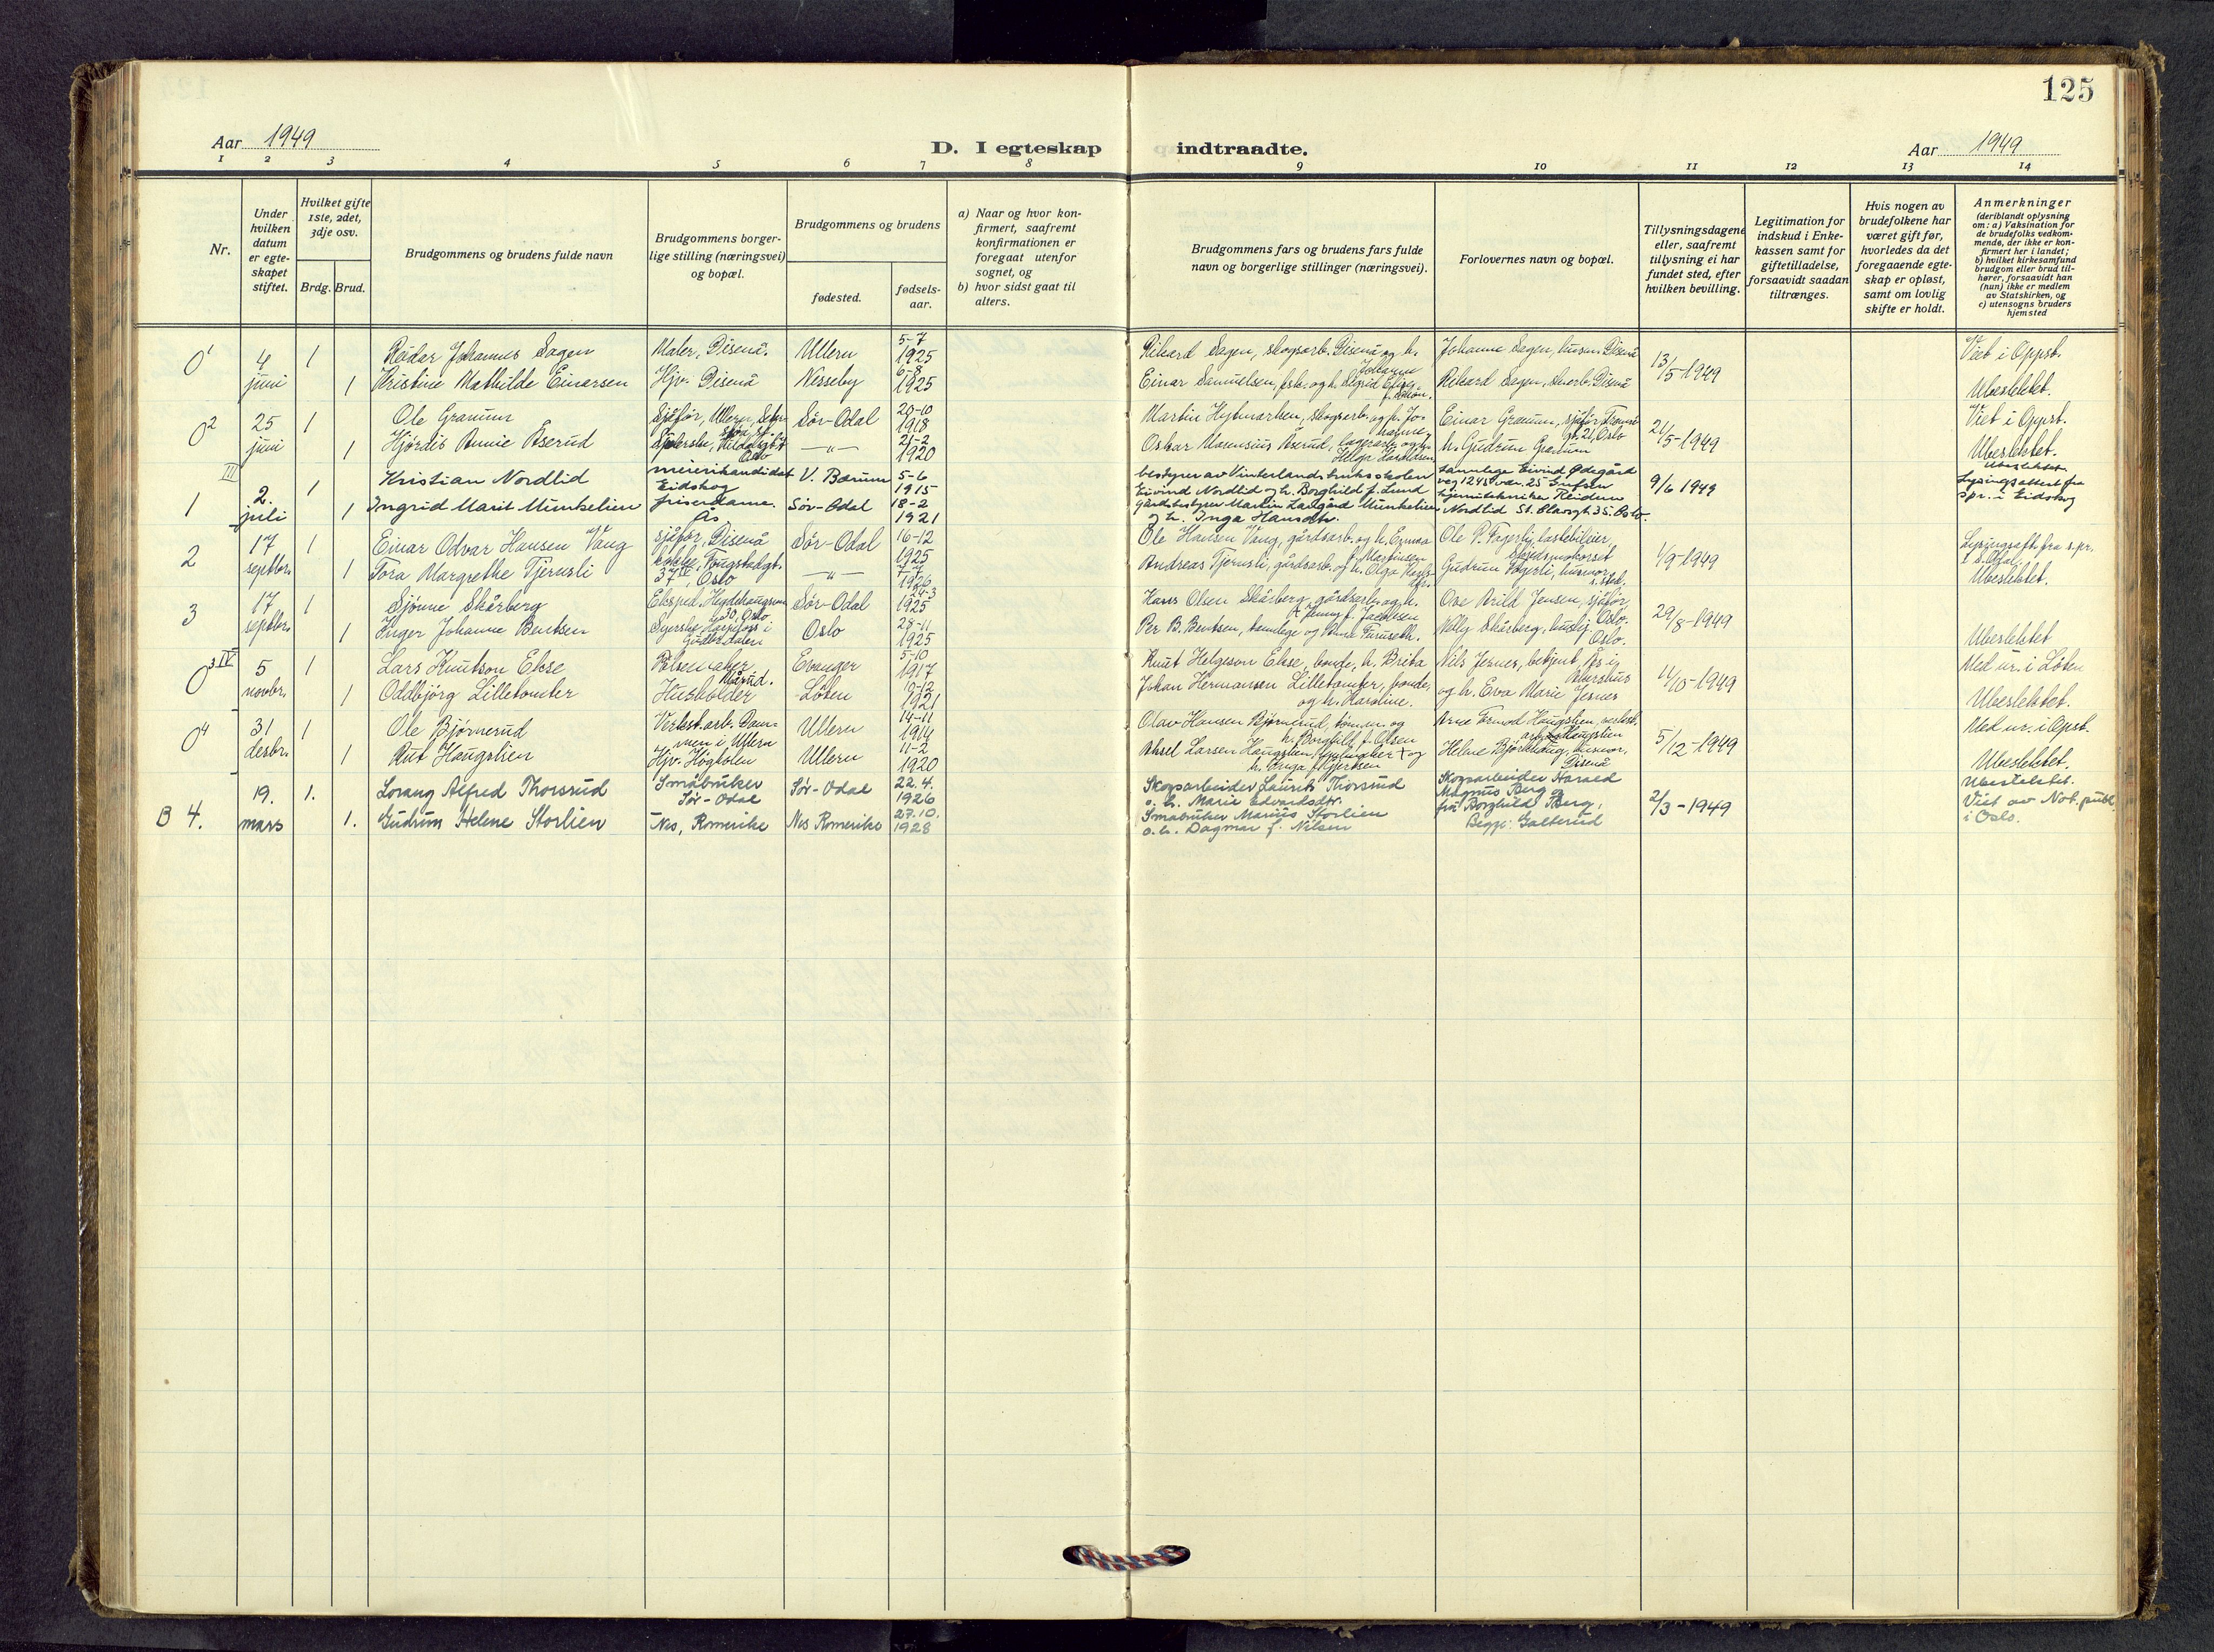 125
Aar 1949
D. I egteskap indtraadte.
Aar 1949
1 2 3 4 5 6 7 8 9 10 11 12 13 14
Nr.
Under hvilken datum er egteskapet stiftet.
Hvilket gifte 1ste, 2det, 3dje osv.
Brdg. Brud.
Brudgommens og brudens fulde navn
Brudgommens borgerlige stilling (næringsvei) og bopæl.
Brudgommens og brudens
fødested.
fødselsaar.
a) Naar og hvor konfirmert, saafremt konfirmationen er foregaat utenfor sognet, og
b) hvor sidst gaat til alters.
Brudgommens fars og brudens fars fulde navn og borgerlige stillinger (næringsvei).
Forlovernes navn og bopæl.
Tillysningsdagene eller, saafremt tillysning ei har fundet sted, efter hvilken bevilling.
Legitimation for indskud i Enkekassen samt for giftetilladelse, forsaavidt saadan tiltrænges.
Hvis nogen av brudefolkene har været gift før, hvorledes da det foregaaende egteskap er opløst, samt om lovlig skifte er holdt.
Anmerkninger
(deriblandt oplysning om: a) Vaksination for de brudefolks vedkommende, der ikke er konfirmert her i landet;
b) hvilket kirkesamfund brudgom eller brud tilhører, forsaavidt han (hun) ikke er medlem av Statskirken, og
c) utensogns bruders hjemsted
0¹ 4 juni 1 Reidar Johannes Sagen Maler, Disenå. Ullern 5-7 1925 Rikard Sagen, skogsarb. Disenå og h. Johanne Johanne Sagen, husm. Disenå 13/5-1949 Viet i Oppst.
1 Kristine Mathilde Einarsen Hjv. Disenå Nesseby 6-8 1925 Einar Samuelsen, fisk. og h. Sigrid Rikard Sagen, skoarb. Disenå Ubeslektet.
0² 25 juni 1 Ole Granum Sjåfør, Ullern, Sør-Odal 20-10 1918 Martin Hytmarken, skogsarb. og h. Johanne Einar Granum, sjåfør, Oslo 21/5-1949 Viet i Oppst.
1 Hjørdis Annie Åserud Oslo -"- 21-2 1920 Oskar Marensius Åserud, lagerarb. og h. Helga Haraldsen h. Gudrun Granum Ubeslektet.
III
1 2. juli 1 Kristian Nordlid meierikandidat Eidskog V. Bærum 5-6 1915 bestyrer av Vinterlandbruksskolen Eivind Nordlid og h. Borghild f. Lund tannlege Eivind Ødegård 9/6 1949 Ubeslektet. Lysingsattest fra spr. i Eidskog
1 Ingrid Marit Munkelien friserdame. Ås Sør-Odal 18-2 1921 gårdsbestyrer Martin Ladgård Munkelien og h. Inga Hansdtr. kjemitekniker Reidun Nordlid St. Olavsgt. 35. Oslo.
2 17 septbr. 1 Einar Odvar Hansen Vang sjåfør, Disenå Sør-Odal 16-12 1925 Ole Hansen Vang, gårdsarb. og h. Emma f. Martinsen Ole P. Fagerli, lastebileier, Skidsmokorset 1/9-1949 Lysingsatt. fra s.pr. i S. Odal.
1 Tora Margrethe Tjernsli Oslo -"- 7-7 1926 Andreas Tjernsli, gårdsarb. og h. Olga Gudrun Fagerli, husmor, s. sted. Ubeslektet.
3 17 septbr. 1 Sjønne Skårberg Eksped. Hegdehaugsvn. 30, Oslo Sør-Odal 24-3 1925 Hans Olsen Skårberg, gårdsarb. og h. Jenny f. Jacobsen Ove Arild Jensen, sjåfør, Oslo. 29/8-1949
1 Inger Johanne Bentsen Syerske, Harpefoss i Gudbrdalen Oslo 28-11 1925 Per B. Bentsen, tannlege og Anna Furuseth. Nelly Skårberg, husligj. Oslo. Ubeslektet
IV
0³ 5 novbr. 1 Lars Knutson Ekse Pølsemaker Evanger 5-10 1917 Knut Helgeson Ekse, bonde, h. Brita Nils Jesnes, betjent, Ås i Akershus 11/10-1949 Med ur. i Løten
1 Oddbjørg Lilletomter Husholder Løten 19-12 1921 Johan Hermansen Lilletomter, bonde, og h. Karoline. og h. Eva Marie Jesnes Ubeslektet.
0⁴ 31 desbr. 1 Ole Bjørnerud Verkst.arb. Dammen i Ullern Ullern 14-11 1914 Olav Hansen Bjørnerud, tømm. og h. Borghild f. Olsen Arne Tormod Haugslien, verkst. arb. Haugslien 5/12-1949 Med ur. i Opst.
1 Rut Haugslien Hjv. Høgholen Ullern 11-2 1920 Aksel Larsen Haugslien, + og h. Inga f. Gjertsen Helene Bjørkhaug, husmor, Disenå Ubeslektet.
B 4. 19. mars 1. Lorang Alfred Thorsrud Småbruker Sør-Odal Sør-Odal 22.4. 1926 Skogsarbeider Laurits Thorsrud o. h. Marie Edvardsdtr. Skogsarbeider Harald Magnus Berg o 2/3-1949 Ubeslektet. Viet av Not. publ. i Oslo.
1. Gudrun Helene Storlien Nes, Romerike Nes Romerike 27.10. 1928 Småbruker Marius Storlien o. h. Dagmar f. Nilsen fru Borghild Berg, Begge: Galterud